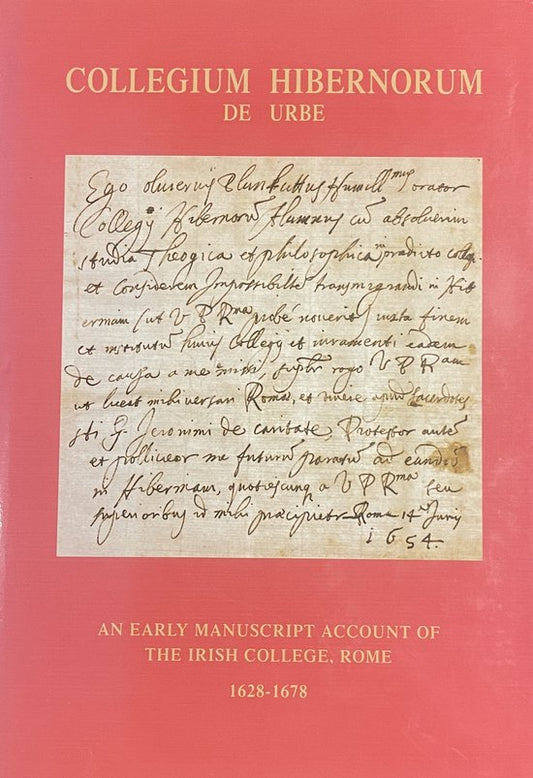 COLLEGIUM HIBERNORUM
DE URBE
Ego oliverius Plunkettus Humill mus orator
Collegij Hibernorū Alumnus cū absoluerim
studia Theogica et philosophica in pradicto colleg.
et considerem Impossibilē transmigrandi in Hib
erniam (ut V P Rma probé nouerit) iuxta finem
et institutū huius Collegij et iuramenti eadem
de causa a me rogo V P Ram
ut liceat mihi versari Roma, et viuere apud Sacerdotes
sti G. Ieronimi de caritate, Protestor autē
et polliceor me futurū paratū ad eundū
in Hiberniam, quotiescunq a V P Rma seu
superioribus id mihi præcipietr Roma 14 Junij
1654.
AN EARLY MANUSCRIPT ACCOUNT OF
THE IRISH COLLEGE, ROME
1628-1678